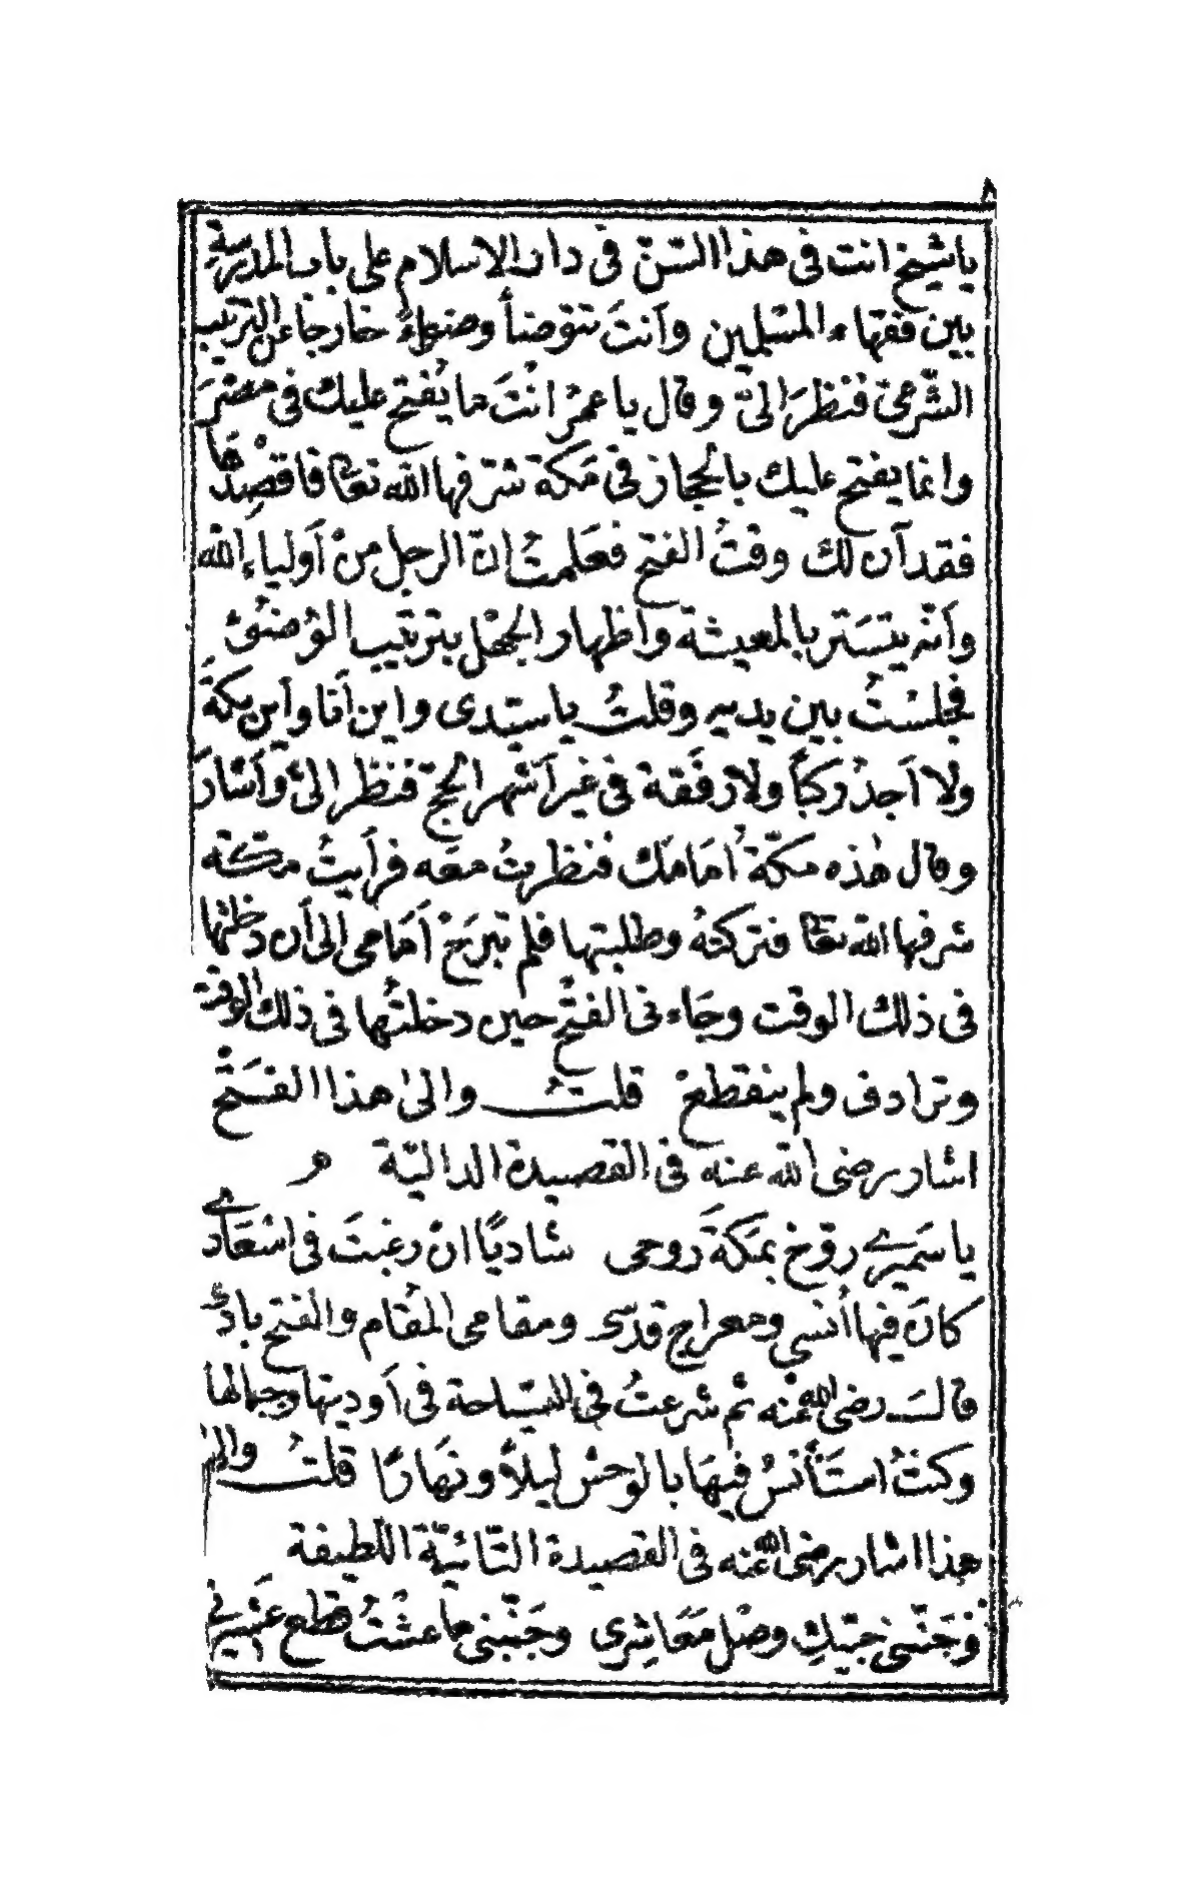 ٨
ياشيخ انت فى هذا السّنّ فى دار الاسلام على باب المدرسة
بين فقهاء المسْلمين وأنتَ تتوضأ وضوءً خارجا عن الترتيب
الشّرعىّ فنظرَ الىّ وقال يا عمرُ انْتَ ما يُفتح عليك فى مصْرَ
وانما يفتح عليك بالحجاز فى مَكة شرّفها الله تعا فاقصِدْها
فقد آن لك وقتُ الفتح فعَلمتُ انّ الرجل منْ أولياءِ الله
وأنّه يتسَتر بالمعيشة واظهار الجهْل بترتيب الوُضوُءْ
فجلسْتُ بين يديه وقلتُ يا سيّدى واين أنا وأين مكةَ
ولا أجدُ ركبًا ولا رفَقة فى غير أشهر الحجّ فنظر الىّ وأشارَ
وقال هٰذه مكّة أمَامَك فنظرتُ معَه فرأيتُ مكّة
شرفها الله تعا فتركتهُ وطلبتها فلم تبرَحْ أمَامى الى أن دخلتها
فى ذلك الوقت وجَاءنى الفتْح حين دخلتُها فى ذلك الوقت
وترادف ولم ينقطعْ قلتُ والىٰ هذا الفَتْح
اشار رضى الله عنه فى القصيدة الداليّة
يا سَميرى روّحْ بمَكةَ روحى شاديًا انْ رغبتَ فى اسْعَادى
كانَ فيها أُنسي ومعراج قدسى ومقامى المُقَام والفتح بادٍ
قالَ رضى الله عنه ثم شرعتُ فى السّياحة فى أوديتها وجبالها
وكنتُ استَأنسُ فيهَا بالوحش ليلاً ونَهارًا قلتُ والى
هذا اشار رضى الله عنه فى القصيدة التّائيّة اللطيفة
وجَنّبنى حبّيكِ وصْل مَعَاشِرى وحَبّبنى ما عشْتُ قطع عَشيرتى